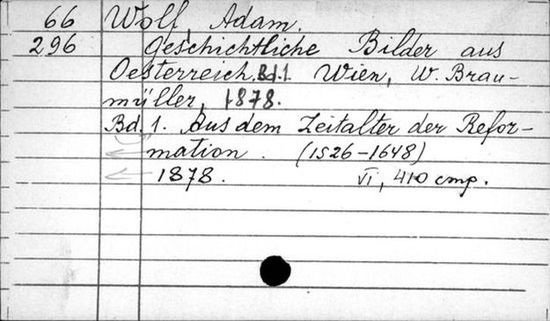 66 Wolf, Adam.
296 Geschichtliche Bilder aus
Oesterreich. Bd.1. Wien, W. Brau-
müller, 1878.
Bd. 1. Aus dem Zeitalter der Refor-
mation. (1526-1648)
1878. VI, 410 стр.